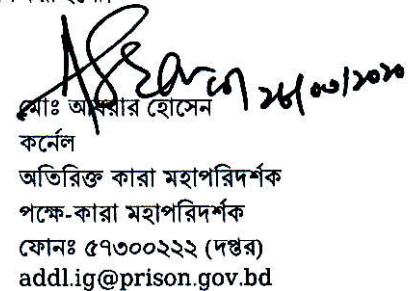 ২৮/০৩/২০২০
মোঃ আবরার হোসেন
কর্নেল
অতিরিক্ত কারা মহাপরিদর্শক
পক্ষে-কারা মহাপরিদর্শক
ফোনঃ ৫৭৩০০২২২ (দপ্তর)
addl.ig@prison.gov.bd